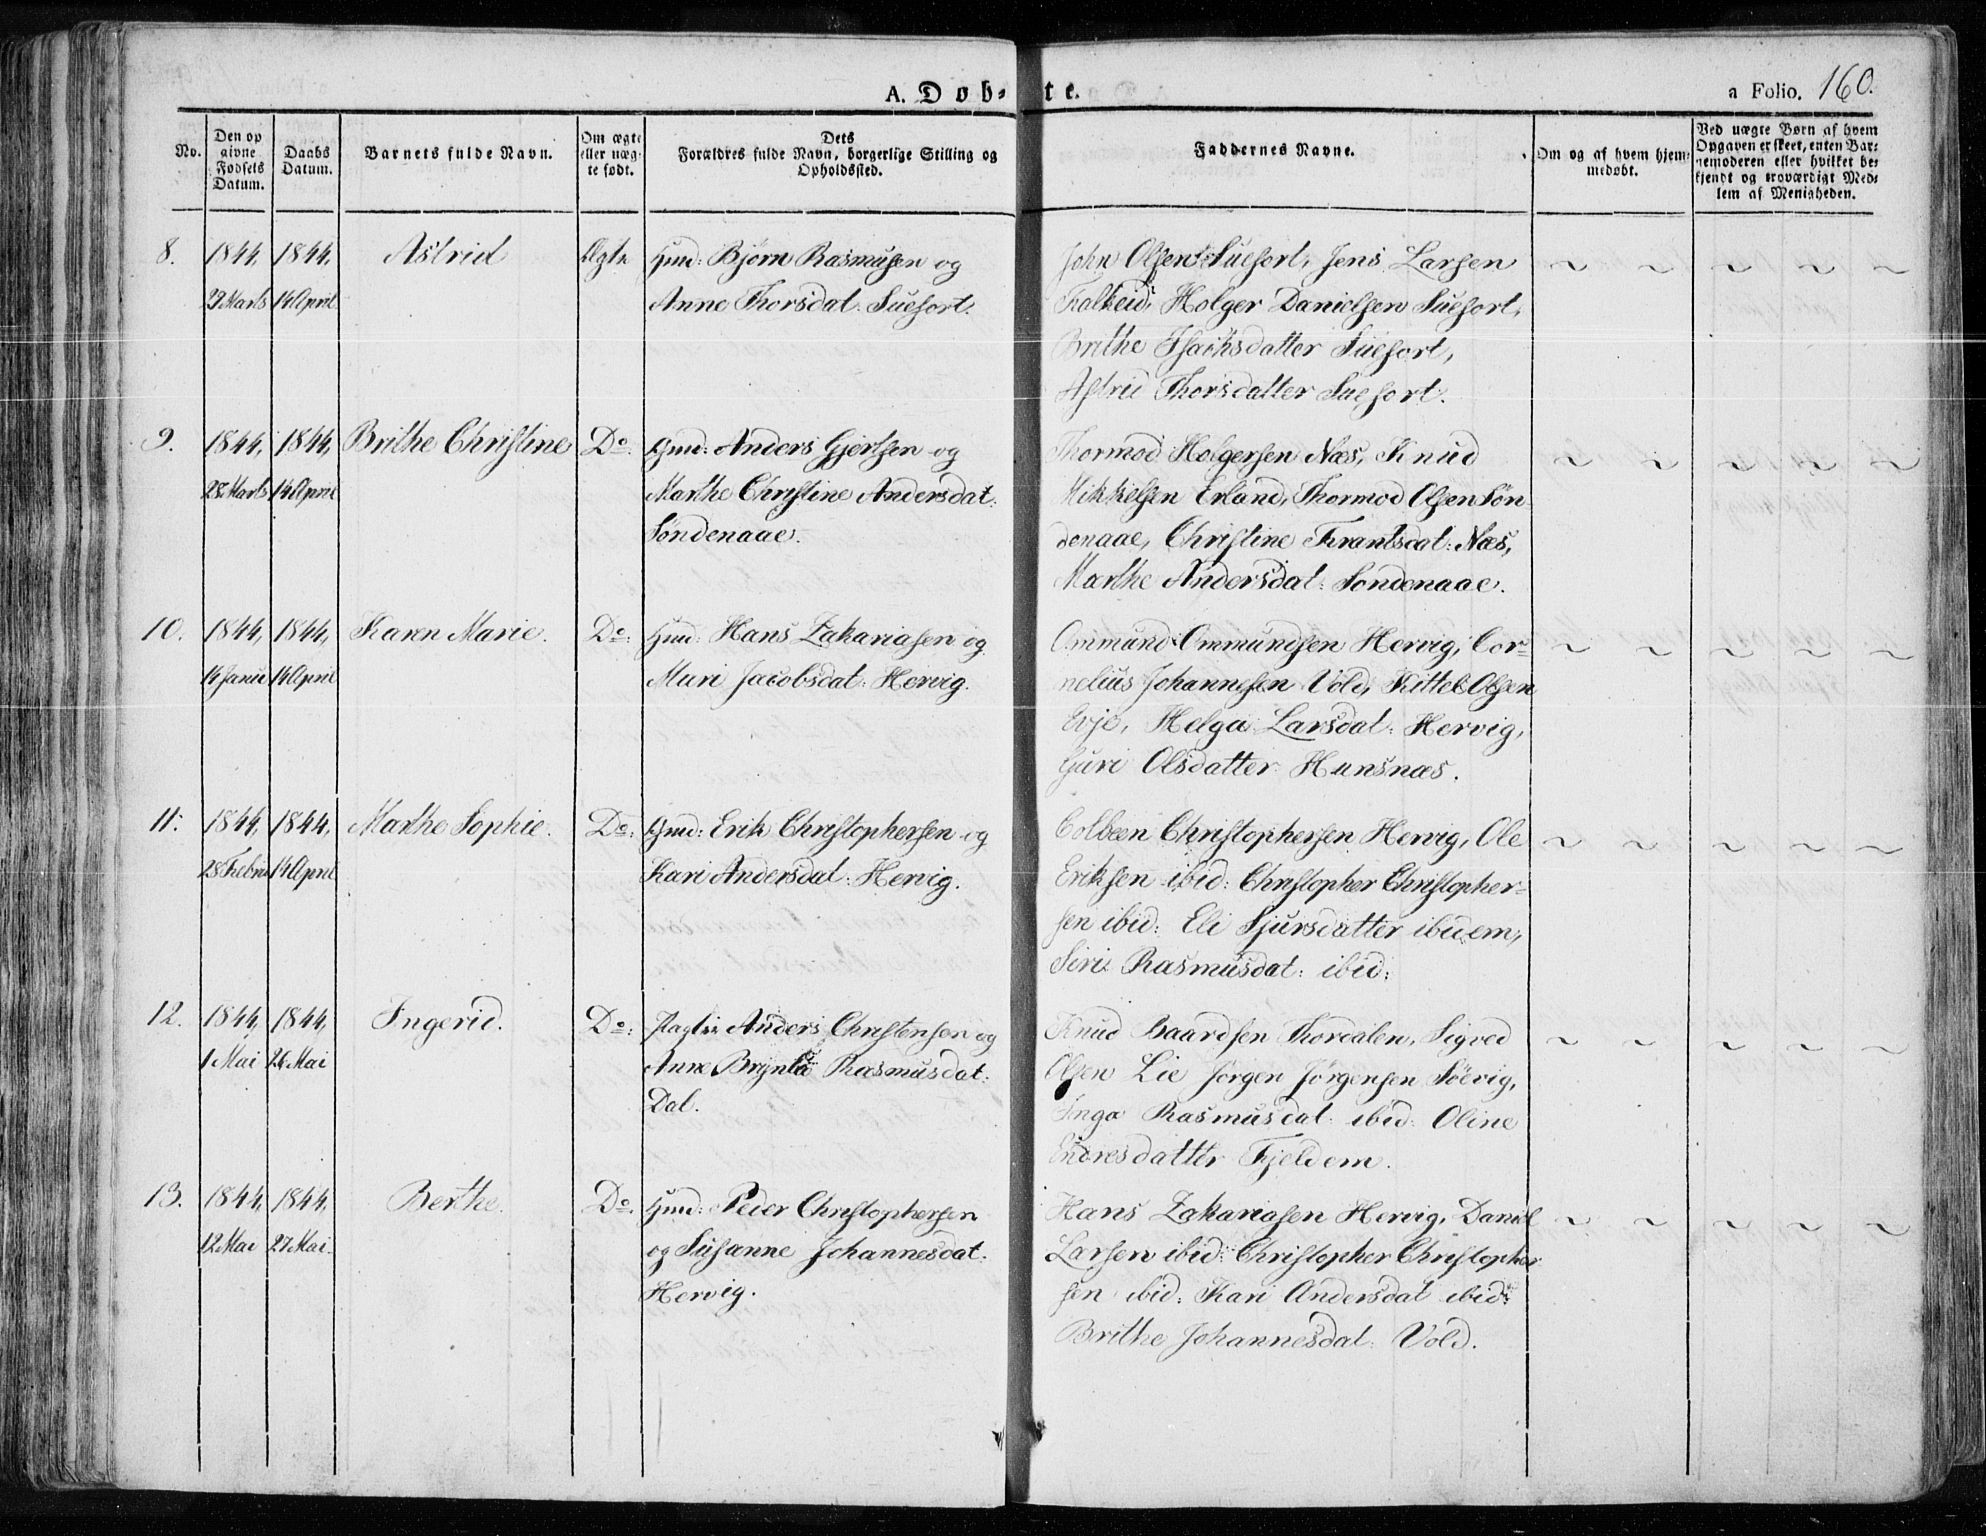 A. Døb-te.
a Folio. 160.
No.
Den op
givne
Fødsels
Datum.
Daabs
Datum.
Barnets fulde Navn.
Om ægte
eller uæg-
te født.
Dets
Forældres fulde Navn, borgerlige Stilling og
Opholdssted.
Faddernes Navne.
Om og af hvem hjem-
medøbt.
Ved uægte Børn af hvem
Opgaven er skeet, enten Bar-
nemoderen eller hvilket be-
kjendt og troværdigt Med-
lem af Menigheden.
8. 1844, 1844, Astrid Ægte Gmd: Bjørn Rasmussen og
Marts 14 April Anne Thorsdat: Suefort.
John Olsen Suefort, Jens Larsen
Kalheid, Holger Danielsen Suefort,
Brithe Isachsdatter Suefort,
Astrid Thorsdatter Suefort.
9. 1844, 1844, Brithe Christine Do. Gmd: Anders Gjertsen og
28 Marts 14 April Marthe Christine Andersdat:
Søndenaae.
Thormod Holgersen Næs, Knud
Mikkelsen Erland, Thormod Olsen Søn
denaae, Christine Frantsdat: Næs,
Marthe Andersdat: Søndenaae.
10. 1844, 1844, Karen Marie. Do: Gmd: Hans Zakariasen og
14 Janu 14 April Muri Jacobsdat: Hervig.
Ommund Ommundsen Hervig, Cor-
nelius Johannesen Vold, Kittel Olsen
Evje, Helga Larsdat: Hervig,
Guri Olsdatter Hunsnæs.
11. 1844, 1844, Marthe Sophie. Do: Gmd: Erik Christophersen og
28 Febru 14 April Kari Andersdat: Hervig.
Colbeen Christophersen Hervig, Ole
Eriksen ibid: Christopher Christopher-
sen ibid: Eli Sjursdatter ibidem,
Siri Rasmusdat: ibid:
12. 1844, 1844, Ingerid. Do: Anders Christensen og
1 Mai 26 Mai Anne Brynla Rasmusdat:
Dal.
Knud Baardsen Thordalen, Sigved
Olsen Lie Jörgen Jörgensen Söevig,
Inga Rasmusdat: ibid: Oline
Endresdatter Fjeldem.
13. 1844, 1844, Berthe. Do. Gmd: Peder Christophersen
12 Mai 27 Mai. og Susanne Johannesdat:
Hervig.
Hans Zakariasen Hervig, Daniel
Larsen ibid: Christopher Christopher
sen ibid: Kari Andersdat ibid:
Brithe Johannesdat: Vold.